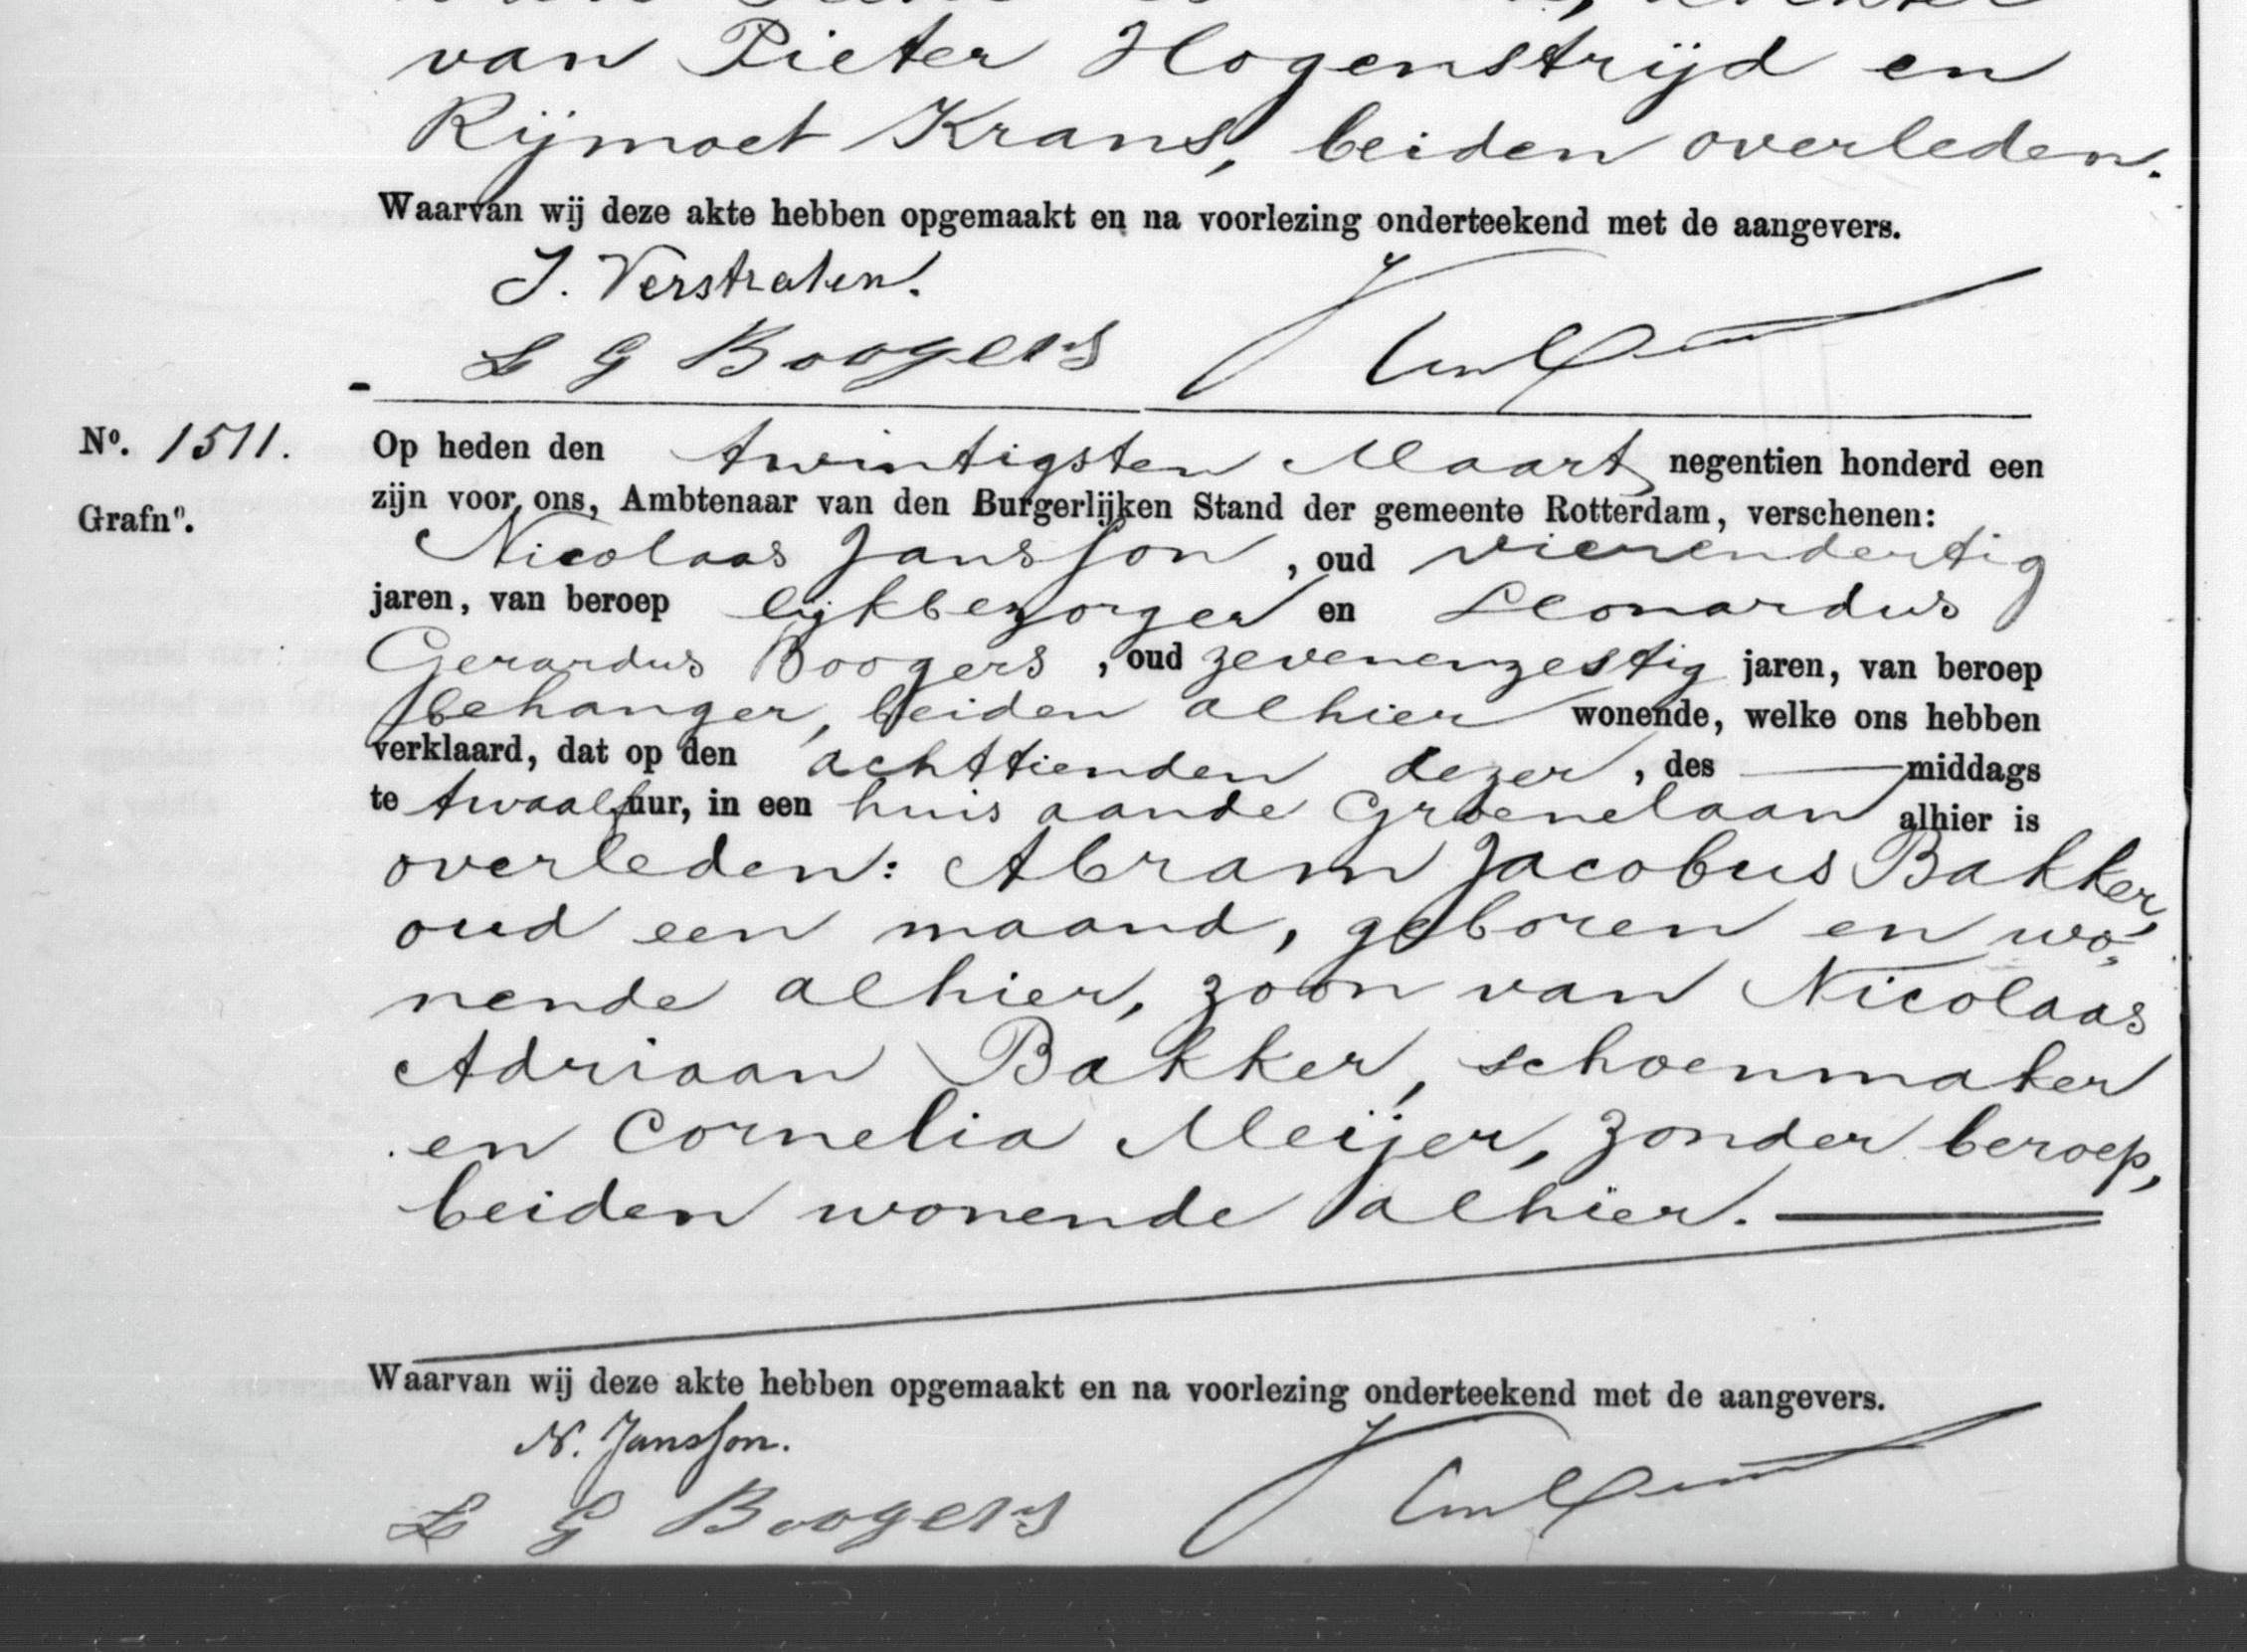 van Pieter Hogenstrijd en
Rijmoet Krans, beiden overleden.
Waarvan wij deze akte hebben opgemaakt en na voorlezing onderteekend met de aangevers.
J. Verstraten.
L G Boogers
No. 1511.
Grafno.
Op heden den twintigsten Maart negentien honderd een
zijn voor ons, Ambtenaar van den Burgerlijken Stand der gemeente Rotterdam, verschenen:
Nicolaas Jansson, oud vierendertig
jaren, van beroep lijkbezorger en Leonardus
Gerardus Boogers, oud zevenenzestig jaren, van beroep
behanger, beiden alhier wonende, welke ons hebben
verklaard, dat op den achttienden dezer, des middags
te twaalf uur, in een huis aande Groenelaan alhier is
overleden: Abram Jacobus Bakker,
oud een maand, geboren en wo-
nende alhier, zoon van Nicolaas
Adriaan Bakker, schoenmaker
en Cornelia Meijer, zonder beroep,
beiden wonende alhier.
Waarvan wij deze akte hebben opgemaakt en na voorlezing onderteekend met de aangevers.
N. Jansson.
L G Boogers